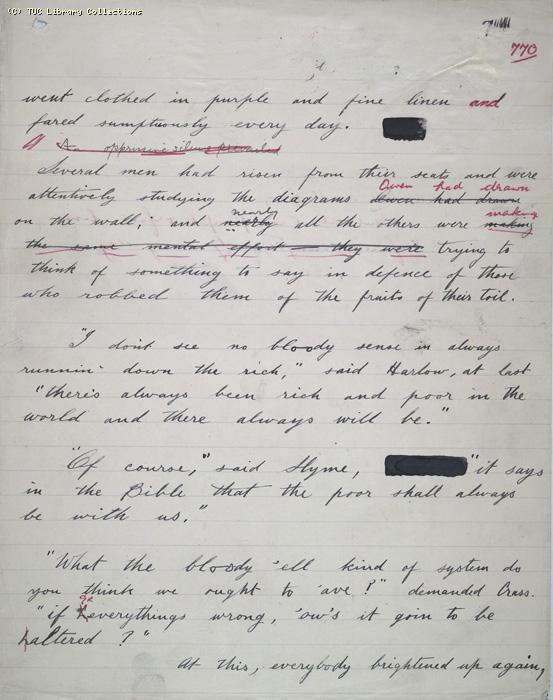 (C) TUC Library Collections
770
went clothed in purple and fine linen and
fared sumptuously every day.
An oppressive silence prevailed
Several men had risen from their seats and were
Owen had drawn
attentively studying the diagrams Owen had drawn
nearly making
on the wall; and nearly all the others were making
the same mental effort — they were trying to
think of something to say in defence of those
who robbed them of the fruits of their toil.
"I don't see no bloody sense in always
runnin' down the rich," said Harlow, at last
"there's always been rich and poor in the
world and there always will be."
"Of course," said Slyme, "it says
in the Bible that the poor shall always
be with us."
"What the bloody 'ell kind of system do
you think we ought to 'ave?" demanded Crass.
"if heverythings wrong, 'ow's it goin to be
haltered?"
At this, everybody brightened up again,